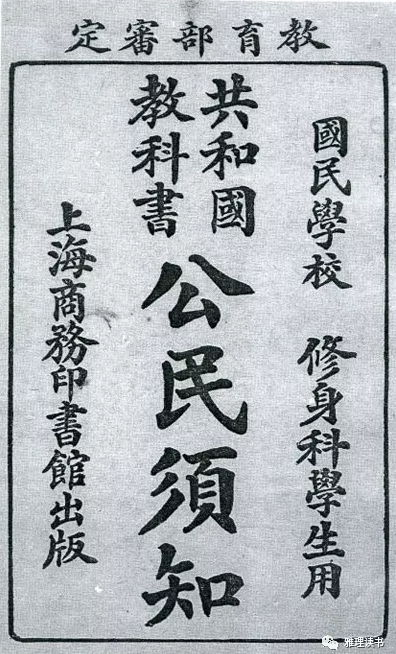 教育部審定
國民學校 修身科學生用
共和國
教科書
公民須知
上海商務印書館出版
雅理读书